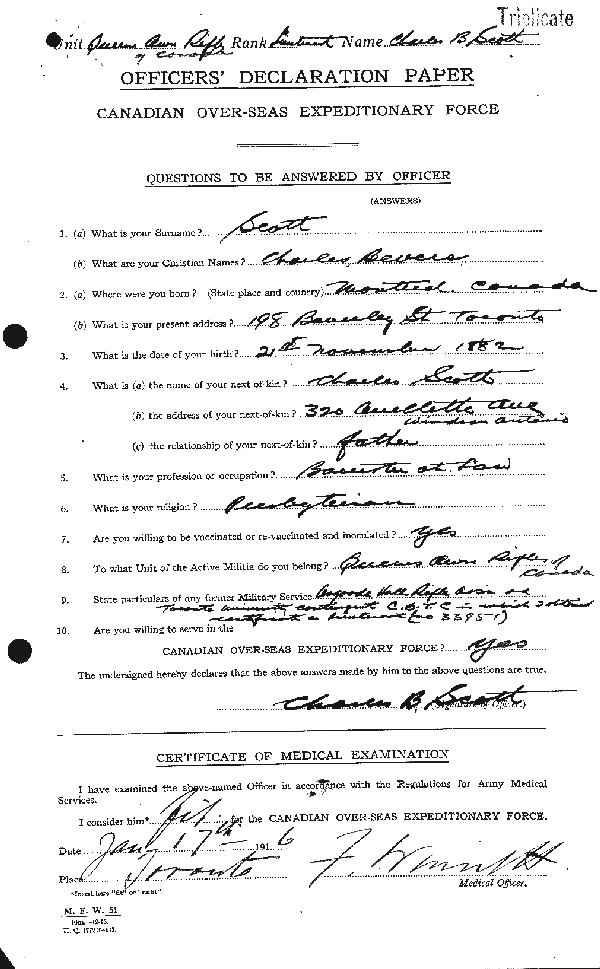 Triplicate
Unit Queens Own Rifles Rank Lieutenant Name Charles B Scott
of Canada
OFFICERS' DECLARATION PAPER
CANADIAN OVER-SEAS EXPEDITIONARY FORCE
QUESTIONS TO BE ANSWERED BY OFFICER
(ANSWERS)
1. (a) What is your Surname? Scott
(b) What are your Christian Names? Charles Bevers
2. (a) Where were you born? (State place and country) Montreal Canada
(b) What is your present address? 198 Beverley St Toronto
3. What is the date of your birth? 21st November 1882
4. What is (a) the name of your next of kin? Charles Scott
(b) the address of your next-of-kin? 320 Ouellette Ave
Windsor Ontario
(c) the relationship of your next-of-kin? father
5. What is your profession or occupation? Barrister at Law
6. What is your religion? Presbyterian
7. Are you willing to be vaccinated or re-vaccinated and inoculated? yes
8. To what Unit of the Active Militia do you belong? Queens Own Rifles of
Canada
9. State particulars of any former Military Service Osgoode Hall Rifle Assn
Toronto University contingent C.O.T.C in which I obtained
certificate as Lieutenant (no 33951)
10. Are you willing to serve in the
CANADIAN OVER-SEAS EXPEDITIONARY FORCE? yes
The undersigned hereby declares that the above answers made by him to the above questions are true.
Charles B Scott
(Signature of Officer)
CERTIFICATE OF MEDICAL EXAMINATION
I have examined the above-named Officer in accordance with the Regulations for Army Medical
Services.
I consider him* fit for the CANADIAN OVER-SEAS EXPEDITIONARY FORCE.
Date Jany 17th 1916
Place Toronto
Medical Officer.
*Insert here "fit" or "unfit"
M. F. W. 51